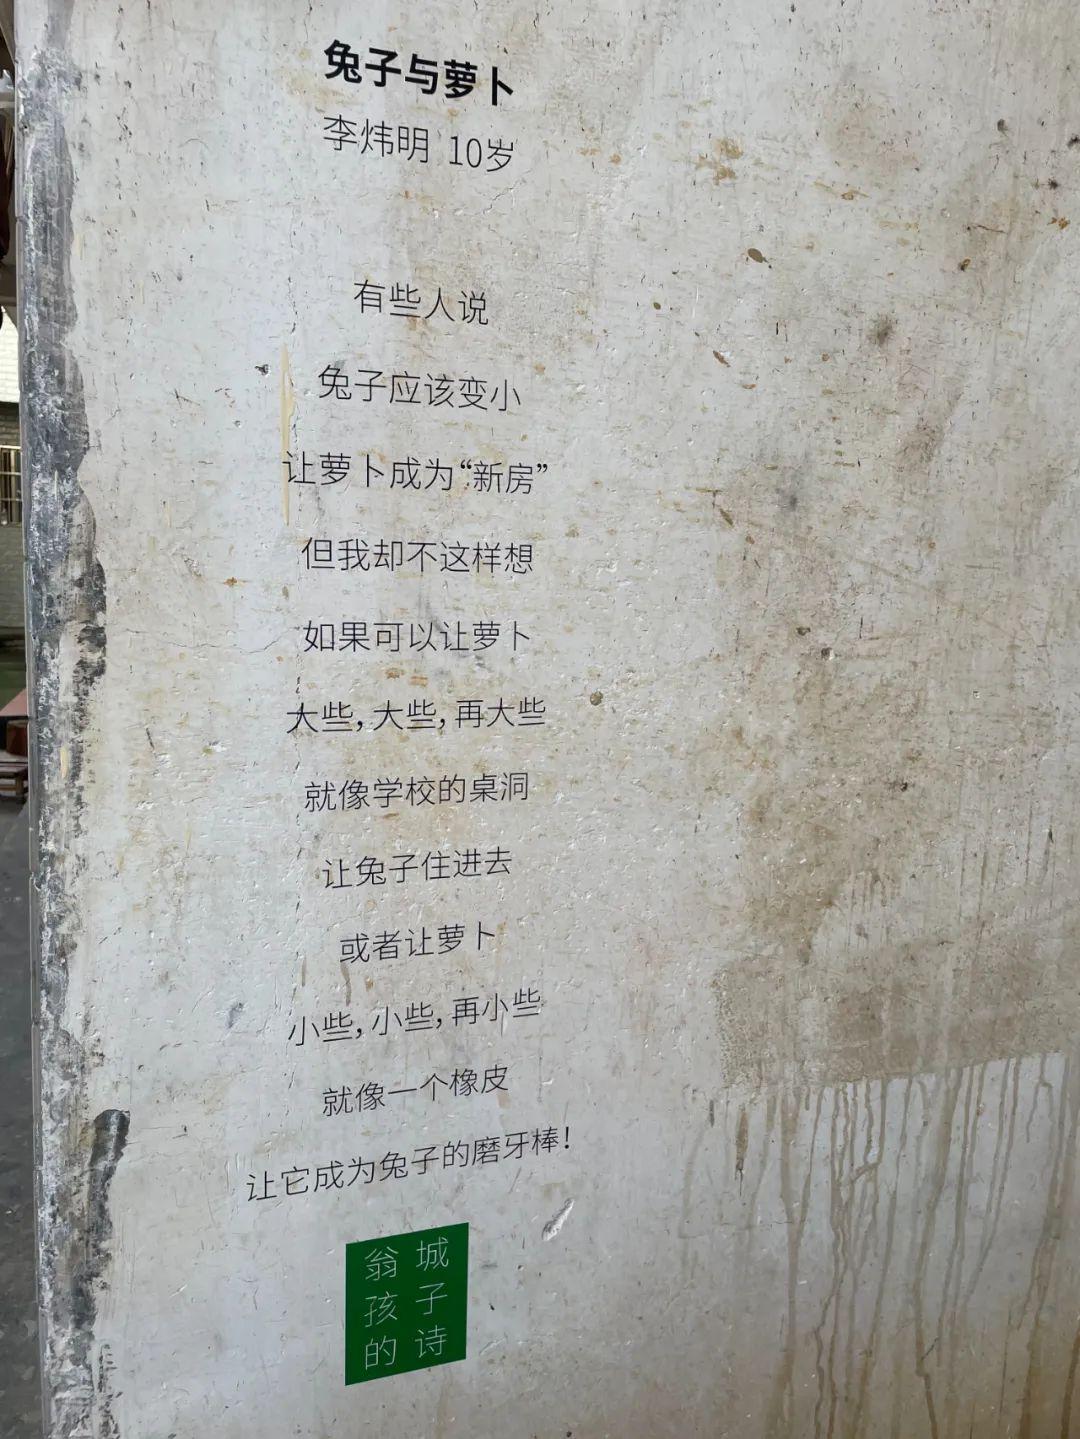 兔子与萝卜
李炜明 10岁
有些人说
兔子应该变小
让萝卜成为“新房”
但我却不这样想
如果可以让萝卜
大些，大些，再大些
就像学校的桌洞
让兔子住进去
或者让萝卜
小些，小些，再小些
就像一个橡皮
让它成为兔子的磨牙棒！
翁城
孩子
的诗